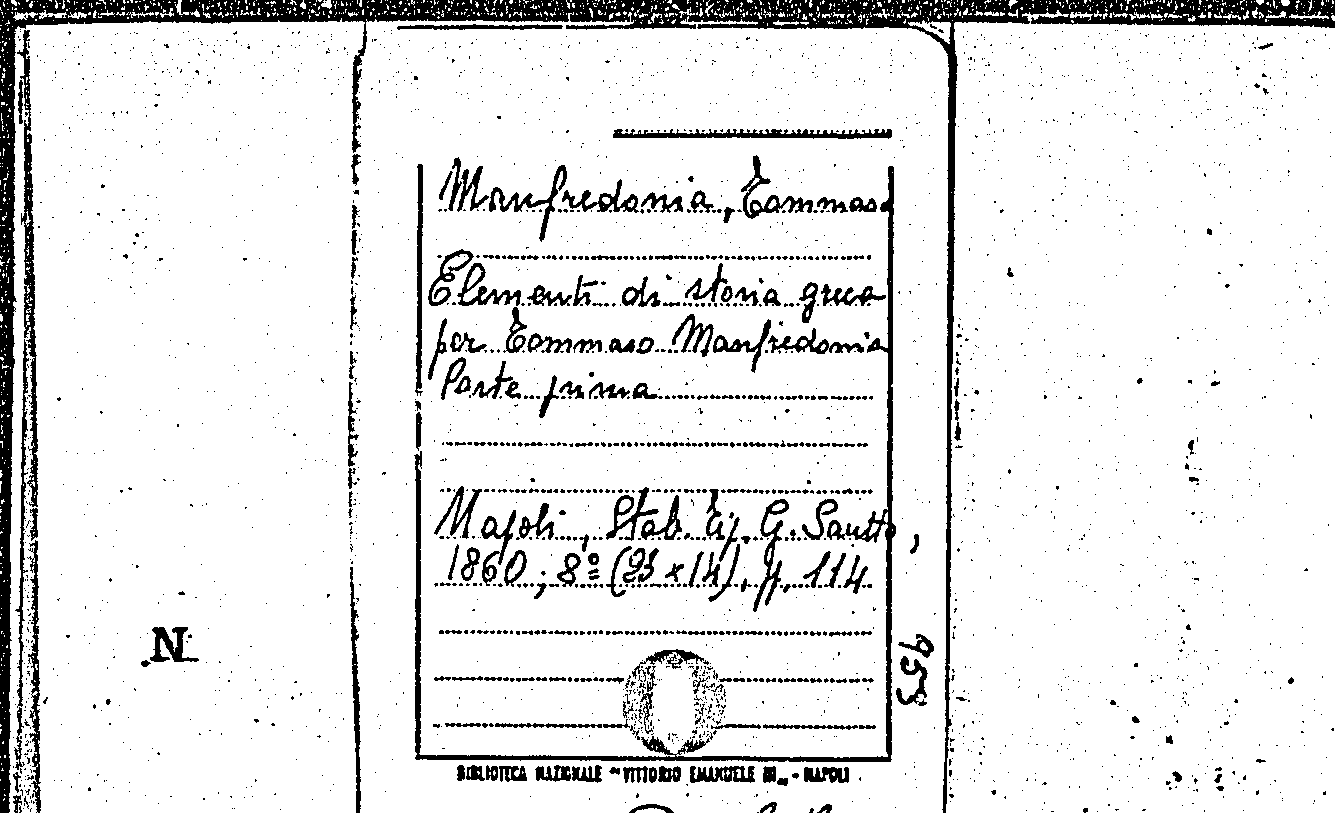 Manfredonia, Tommaso
Elementi di storia greca
per Tommaso Manfredonia
Parte prima
Napoli, Stab. Tip. G. Sautto,
1860; 8º (23 x 14), p. 114
N
953
BIBLIOTECA NAZIONALE "VITTORIO EMANUELE III" - NAPOLI